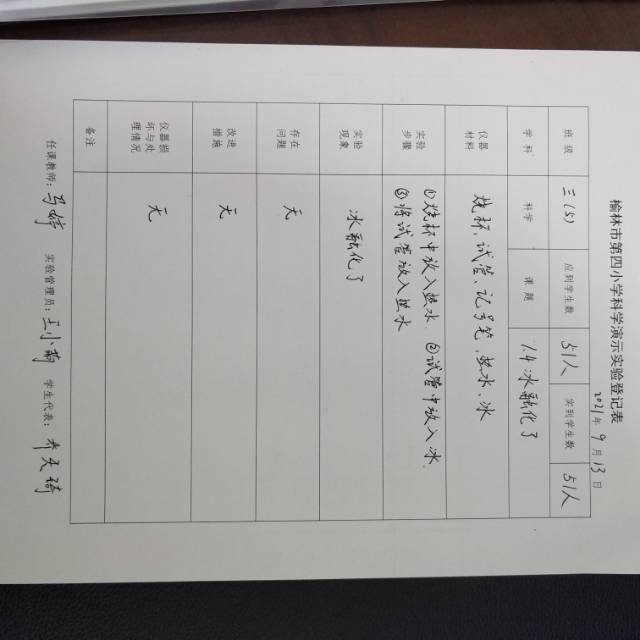 榆林市第四小学科学演示实验登记表
2021年9月13日
班级 三(5) 应到学生数 51人 实到学生数 51人
学科 科学 课题 1.4 冰融化了
仪器材料 烧杯、试管、记号笔、热水、冰
实验步骤 ①烧杯中放入热水. ②试管中放入冰.
③将试管放入热水
实验现象 冰融化了
存在问题 无
改进措施 无
仪器损坏与处理情况 无
备注
任课教师: 马婷 实验管理员: 王小莉 学生代表: 乔天琦